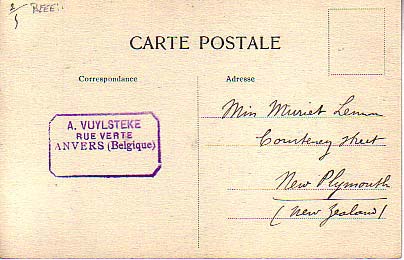 BEEE.
CARTE POSTALE
Correspondance
Adresse
A. VUYLSTEKE
RUE VERTE
ANVERS (Belgique)
Miss Muriel Lemon
Courtenay street
New Plymouth
(New Zealand)